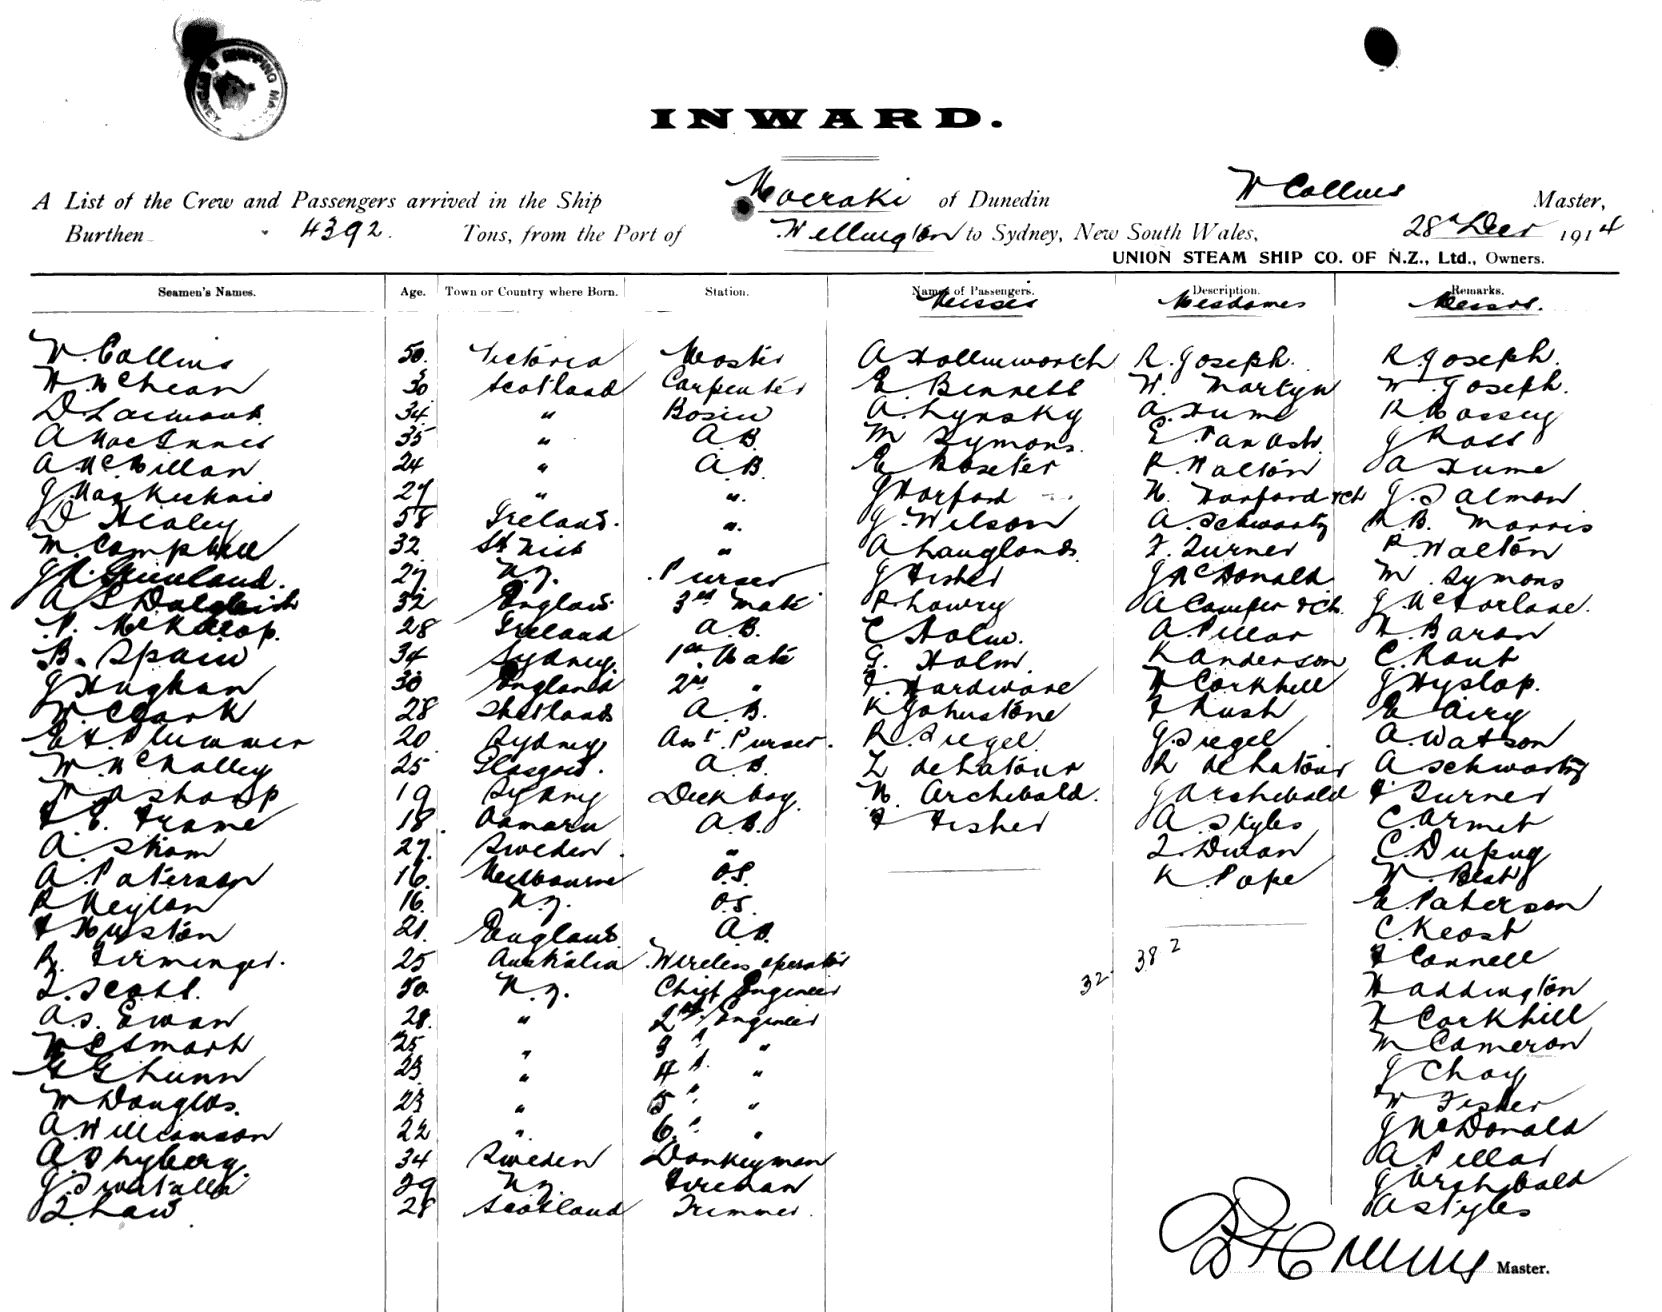 INWARD.
A List of the Crew and Passengers arrived in the Ship Moeraki of Dunedin W Collins Master,
Burthen 4392. Tons, from the Port of Wellington to Sydney, New South Wales, 28th Decr 1914
UNION STEAM SHIP CO. OF N.Z., Ltd., Owners.
Seamen's Names. Age. Town or Country where Born. Station. Names of Passengers. Description. Remarks.
Misses Mesdames Messrs.
W. Collins 50 Victoria Master A Hollinworth R. Joseph. R Joseph.
30 Scotland Carpenter E Bennett W. Martyn W Joseph.
D 34 " Bosun A. Lynsky A. Hume R Massey
A MacInnes 35 " A.B. M Symons. E Van Asch J Ross
A McMillan 24 " A.B. E Roseter R. Walton A Hume
J 27 " " J Harford N. Harford & ch J. Salmon
D Healey 58 Ireland. " J. Wilson A. Schwartz R.B. Morris
M. Campbell 32 " A Langlands F. Turner R Walton
27 N.Z. Purser J Fisher J McDonald M. Symons
A S Dalgleish 32 England 3rd Mate R Lowry A Camper & ch. J McFarlane.
P. McKillop. 28 Ireland A.B. C Holm. A. Pillar H. Baron
B. Spain 34 Sydney. 1st Mate G. Holm K Anderson C. Rout
J Hughan 30 England 2nd " F. Hardware W Corkhill J Hyslop.
W Clark 28 Shetlands A.B. K Johnstone F Rush E Airy
E F Plummer 20 Sydney Asst. Purser. R. Siegel J Siegel A. Watson
W. McNalley 25 Glasgow. A.B. Z de Latour R de Latour A Schwartz
Sharp 19 Sydney Deck boy. N. Archibald. J Archibald F Turner
F E. Frame 18 Oamaru A.B. F Fisher A. Styles C. Armit
A. Strom 27. Sweden. " T. Dwan C. Dupuy
A. Paterson 16. Melbourne O.S. K. Pope W. Best
R Neylon 16. N.Z. O.S. E. Paterson
F Huston 21. England. A.B. C. Keast
R. Firminger. 25 Australia Wireless operator F Connell
T. Scott. 50 N.Z. Chief Engineer H Addington
32 38 2
A.S. Ewan 28. " 2nd Engineer W Corkhill
W C Smart 25 " 3rd " M Cameron
G G Lunn 23 " 4th " J Choy
M Douglas. 23 " 5 " " W Fisher
A Williamson 22 " 6 " " J McDonald
A. Shyberg. 34 Sweden Donkeyman A. Pillar
J. 29 N.Z. Fireman J Archibald
T. Law 28 Scotland Trimmer. A Styles
Collins Master.